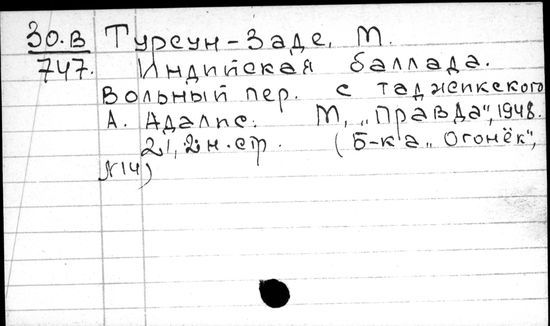 30.В Турсун-Заде, М.
747. Индийская баллада.
Вольный пер. с таджикского
А. Адалис. М, „Правда", 1948.
21, 2 н. стр. (Б-ка „Огонёк",
N14)